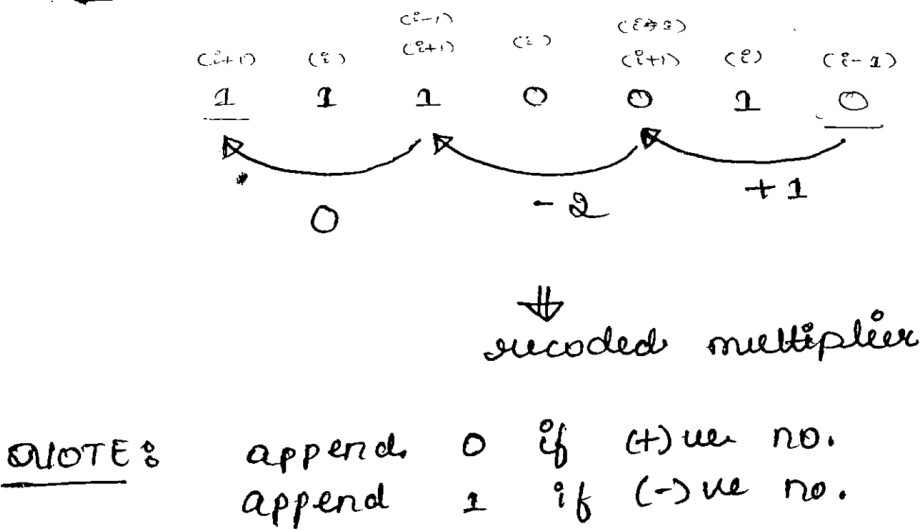 (i-1)
(i+1) (i) (i+1) (i) (i+1) (i) (i-1)
1 1 1 0 0 1 0
0 -2 +1
recoded multiplier
NOTE: append 0 if (+)ve no.
append 1 if (-)ve no.